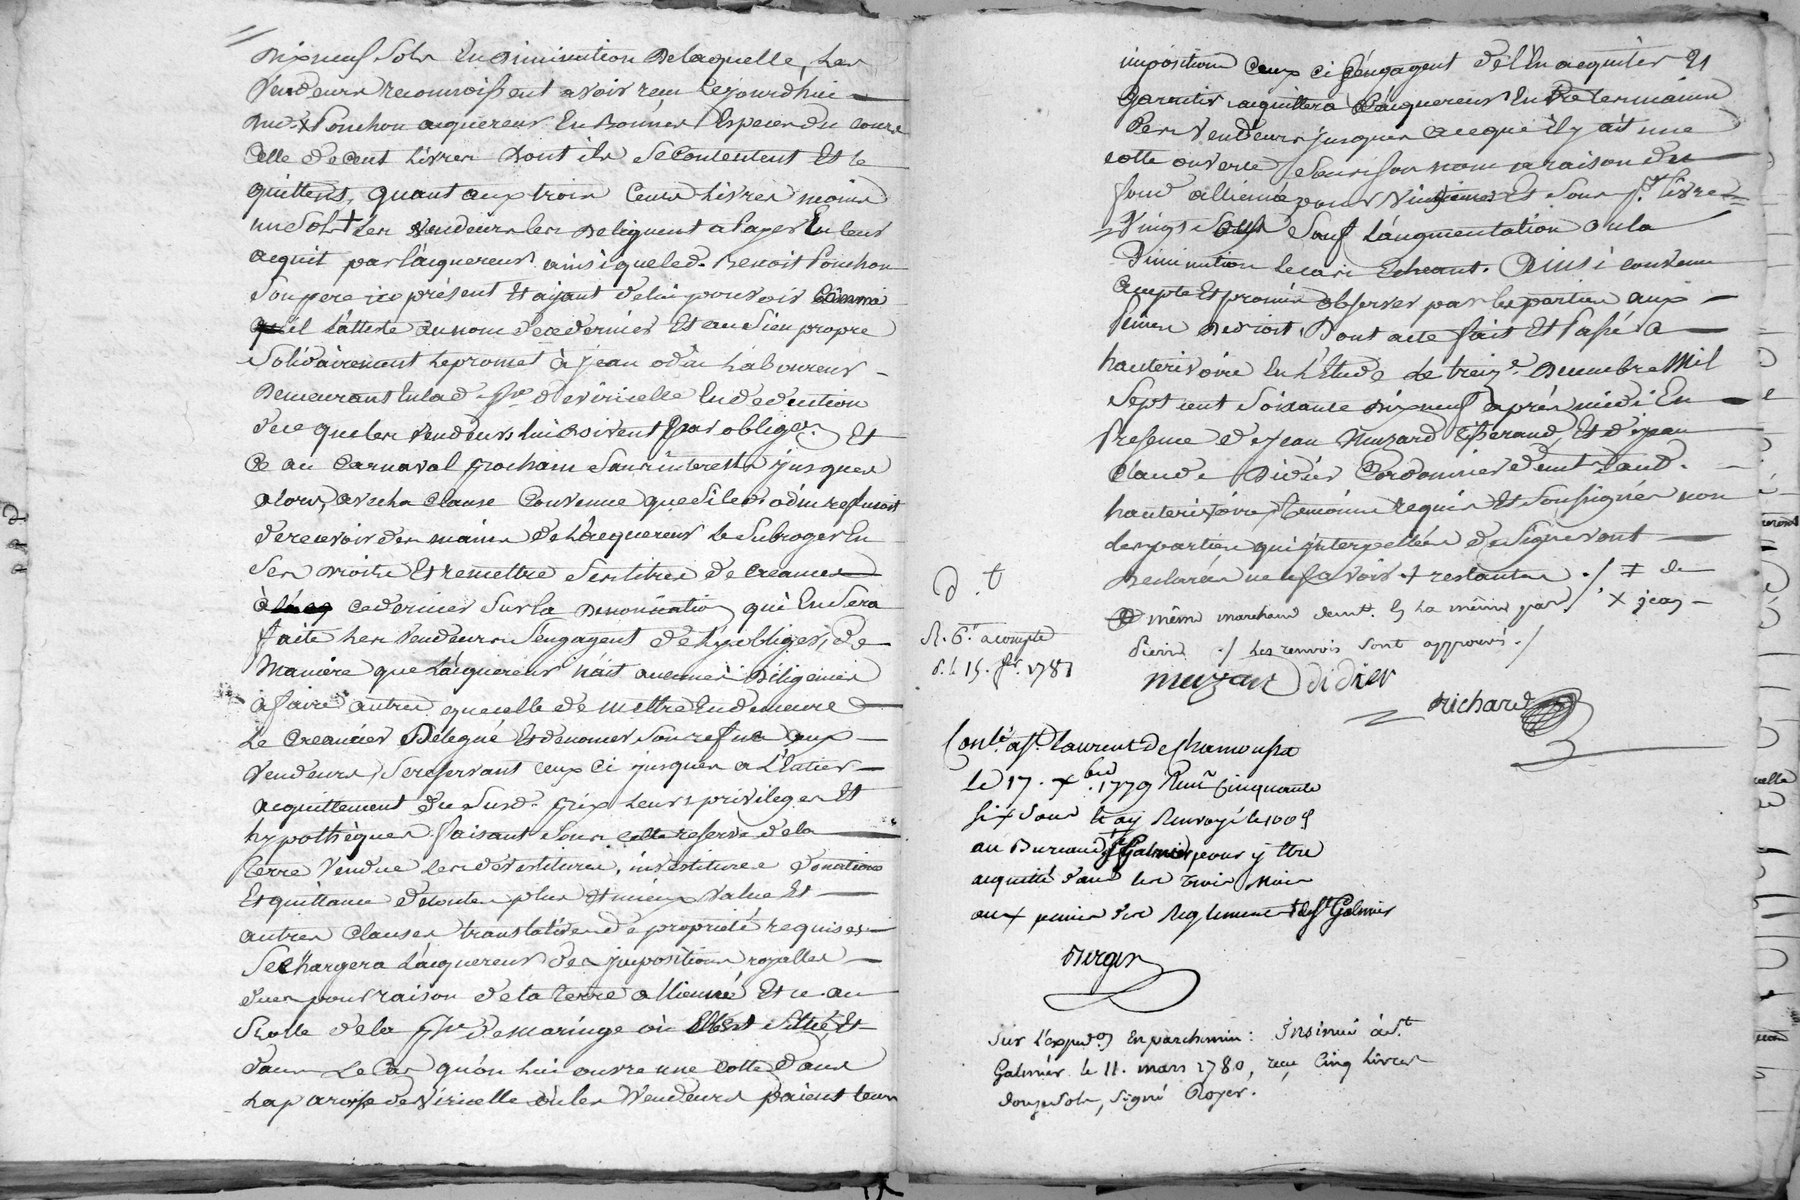 Dixneuf Sols En Diminution De laquelle, Les
Vendeurs reconnoissent avoir recu Cejourdhui
Dud. + Ponchon acquereur En Bonnes Especes du cours
Celle de Cent Livres Dont ils Se Contentent Et le
quittent, quant aux trois Cents Livres moins
un Sol + Les Vendeurs les Deleguent a Payer En leur
acquit par l'acquereur ainsi que led. Benoit Ponchon
Son pere icy présent Et ayant de lui pouvoir comme
il L'atteste au nom de ce dernier Et au Sien propre
Solidairement le promet à jean odin Laboureur
Demeurant En lad. psse de viricelle En deduction
de ce que les Vendeurs lui doivent par obligon. Et
Ce au Carnaval prochain Sans interets jusques
alors, avec la Clause Convenue que Si led. odin refusoit
de recevoir des mains de L'acquereur le Subroger En
Ses Droits Et remettre Ses titres de Creances
à ce dernier Sur la Denonciation qui En Sera
faite Les Vendeurs S'engagent de L'y obliger, de
Maniere que L'acquereur n'ait aucunes Diligences
à faire autres que celle de mettre En demeure
Le Creancier Délegué Et denoncer Son refus aux
Vendeurs, Se reservant ceux ci jusques a L'Entier
acquittement du Susd. prix Leurs privileges Et
hypothèques faisant Sous cette reserve de la
Terre Vendue les devestitures, investitures donations
Et quittance de toutes plus Et mieux Value Et
autres Clauses translatives de propriété requises
Se Chargera L'acquereur des impositions royalles
dues pour raison de la terre alliennée Et ce au
Rolle de la psse de maringe où Elle est Située Et
dans Le Cas qu'on Lui ouvre une Cotte dans
La paroisse de Viricelle où les Vendeurs paient leurs
imposition Ceux ci S'engagent de l'En acquiter Et
Garentir acquittera L'acquereur Entre les mains
Des Vendeurs jusques a ce que il y ait une
cotte ouverte Sous son nom a raison du
fond allienné pour Vingtiemes Et Sous pr. Livre
Vingt Sols Sauf L'augmentation ou la
Diminution le cas Echeant. Ainsi convenu
accepté Et promis observer par les parties aux
peines De droit Dont acte fait Et Passé a
hauterivoire En L'Etude Le treize. Decembre Mil
Sept cent Soixante Dixneuf après midi En
Presence de jean Muzard Tisserand, Et de jean
Claude Didier Cordonnier demt. aud.
hauterivoire, temoins requis Et Soussignés non
les parties qui interpellées de Signer ont
Declarées ne le Savoir + restantes ./ ‡ de
même marchand demt. En La même par. / × jean
Pierre ./ Les renvois sont approuvés ./
d. t
R. 6.tt acompte
d. le 15. fr. 1781
muzard Didier
Richard
Conlé a St. Laurent de Chamousset
le 17. xbre 1779 Recu Cinquante
Six Sous le ay Renvoyé le 100e
au Bureau de St Galmier pour y Etre
acquitté dans les trois Mois
aux peines des Reglements de St Galmier
Berger
Sur L'expedon En parchemin: Insinué à St
Galmier le 11. mars 1780, recu Cinq Livres
douze Sols, Signé Royer.